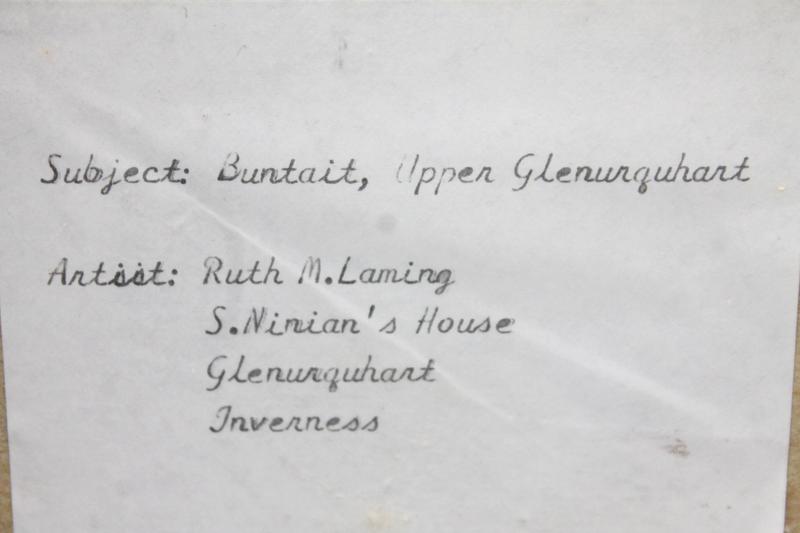 Subject: Buntait, Upper Glenurquhart
Artist: Ruth M. Laming
S. Ninian's House
Glenurquhart
Inverness